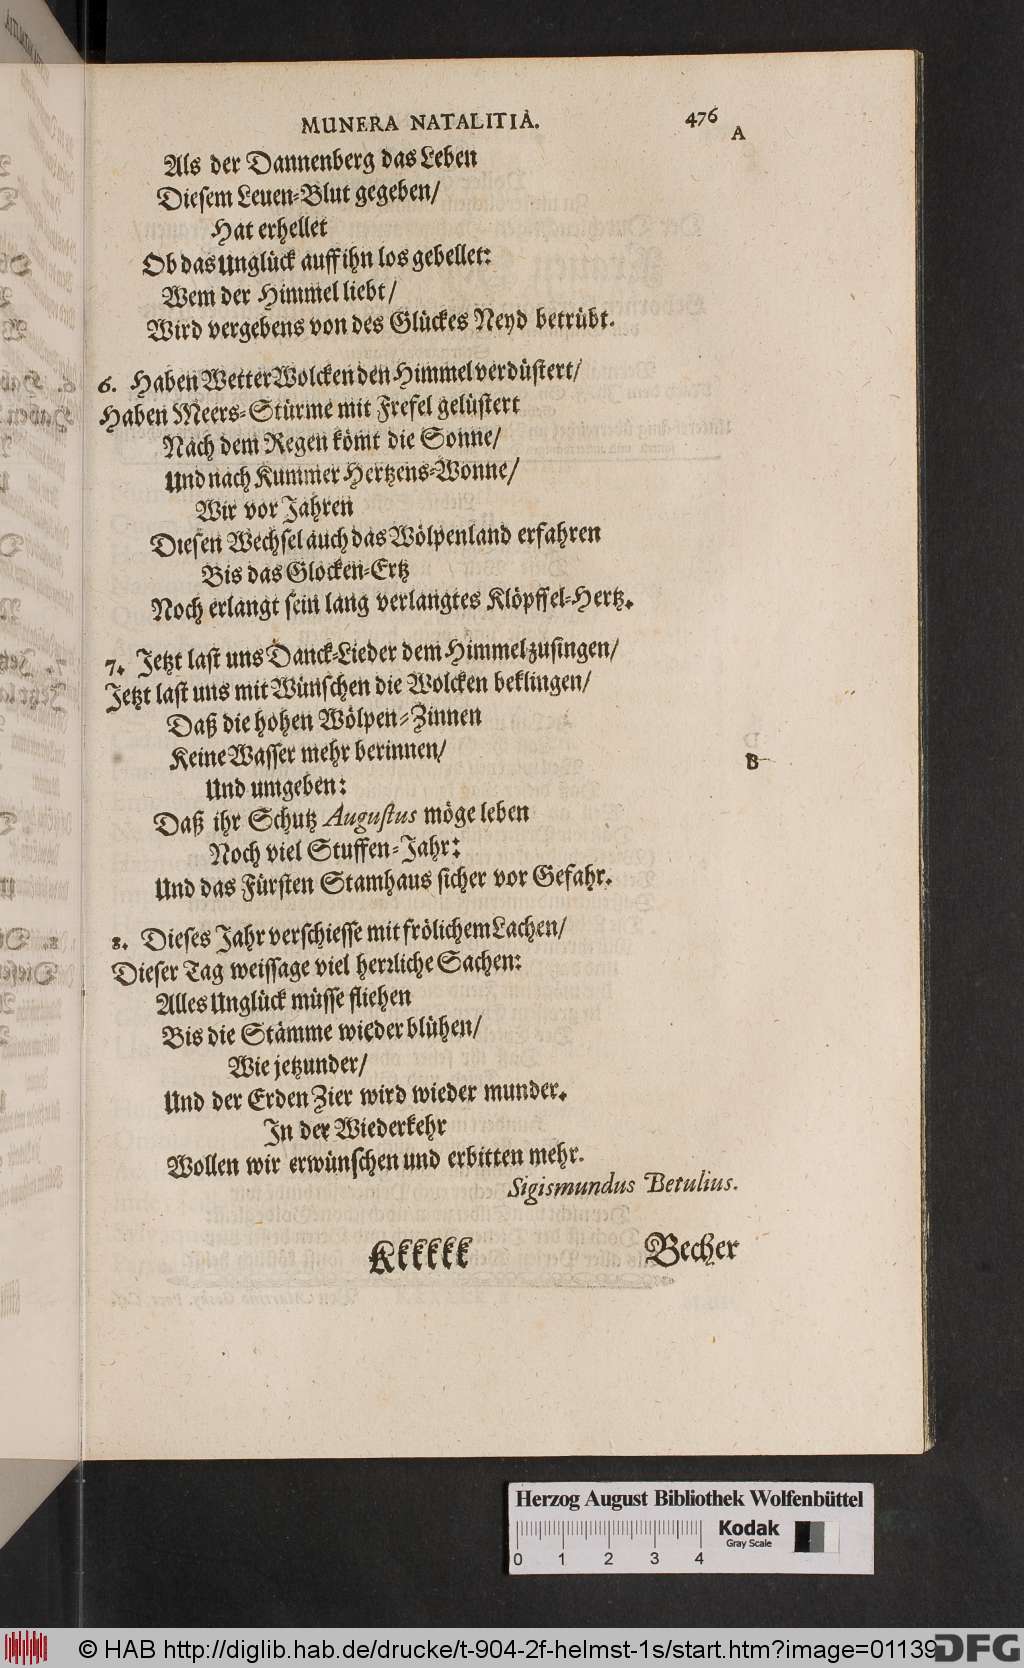 MUNERA NATALITIA. 476
A
Als der Dannenberg das Leben
Diesem Leuen-Blut gegeben/
Hat erhellet
Ob das Unglück auff ihn los gebellet:
Wem der Himmel liebt/
Wird vergebens von des Glückes Neyd betrübt.
6. Haben Wetter Wolcken den Himmel verdüstert/
Haben Meers-Stürme mit Frefel gelüstert
Nach dem Regen kömt die Sonne/
Und nach Kummer Hertzens-Wonne/
Wir vor Jahren
Diesen Wechsel auch das Wölpenland erfahren
Bis das Glocken-Ertz
Noch erlangt sein lang verlangtes Klöpffel-Hertz.
7. Jetzt last uns Danck-Lieder dem Himmel zusingen/
Jetzt last uns mit Wünschen die Wolcken beklingen/
Daß die hohen Wölpen-Zinnen
Keine Wasser mehr berinnen/
B
Und umgeben:
Daß ihr Schutz Augustus möge leben
Noch viel Stuffen-Jahr:
Und das Fürsten Stamhaus sicher vor Gefahr.
8. Dieses Jahr verschiesse mit frölichem Lachen/
Dieser Tag weissage viel herrliche Sachen:
Alles Unglück müsse fliehen
Bis die Stämme wieder blühen/
Wie jetzunder/
Und der Erden Zier wird wieder munder.
In der Wiederkehr
Wollen wir erwünschen und erbitten mehr.
Sigismundus Betulius.
Kkkkkk Becher
Herzog August Bibliothek Wolfenbüttel
Kodak
Gray Scale
0 1 2 3 4
© HAB http://diglib.hab.de/drucke/t-904-2f-helmst-1s/start.htm?image=01139
DFG